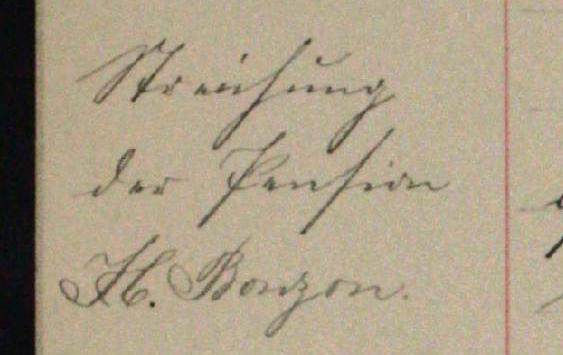 Streichung
der Pension
H. Bonzon.